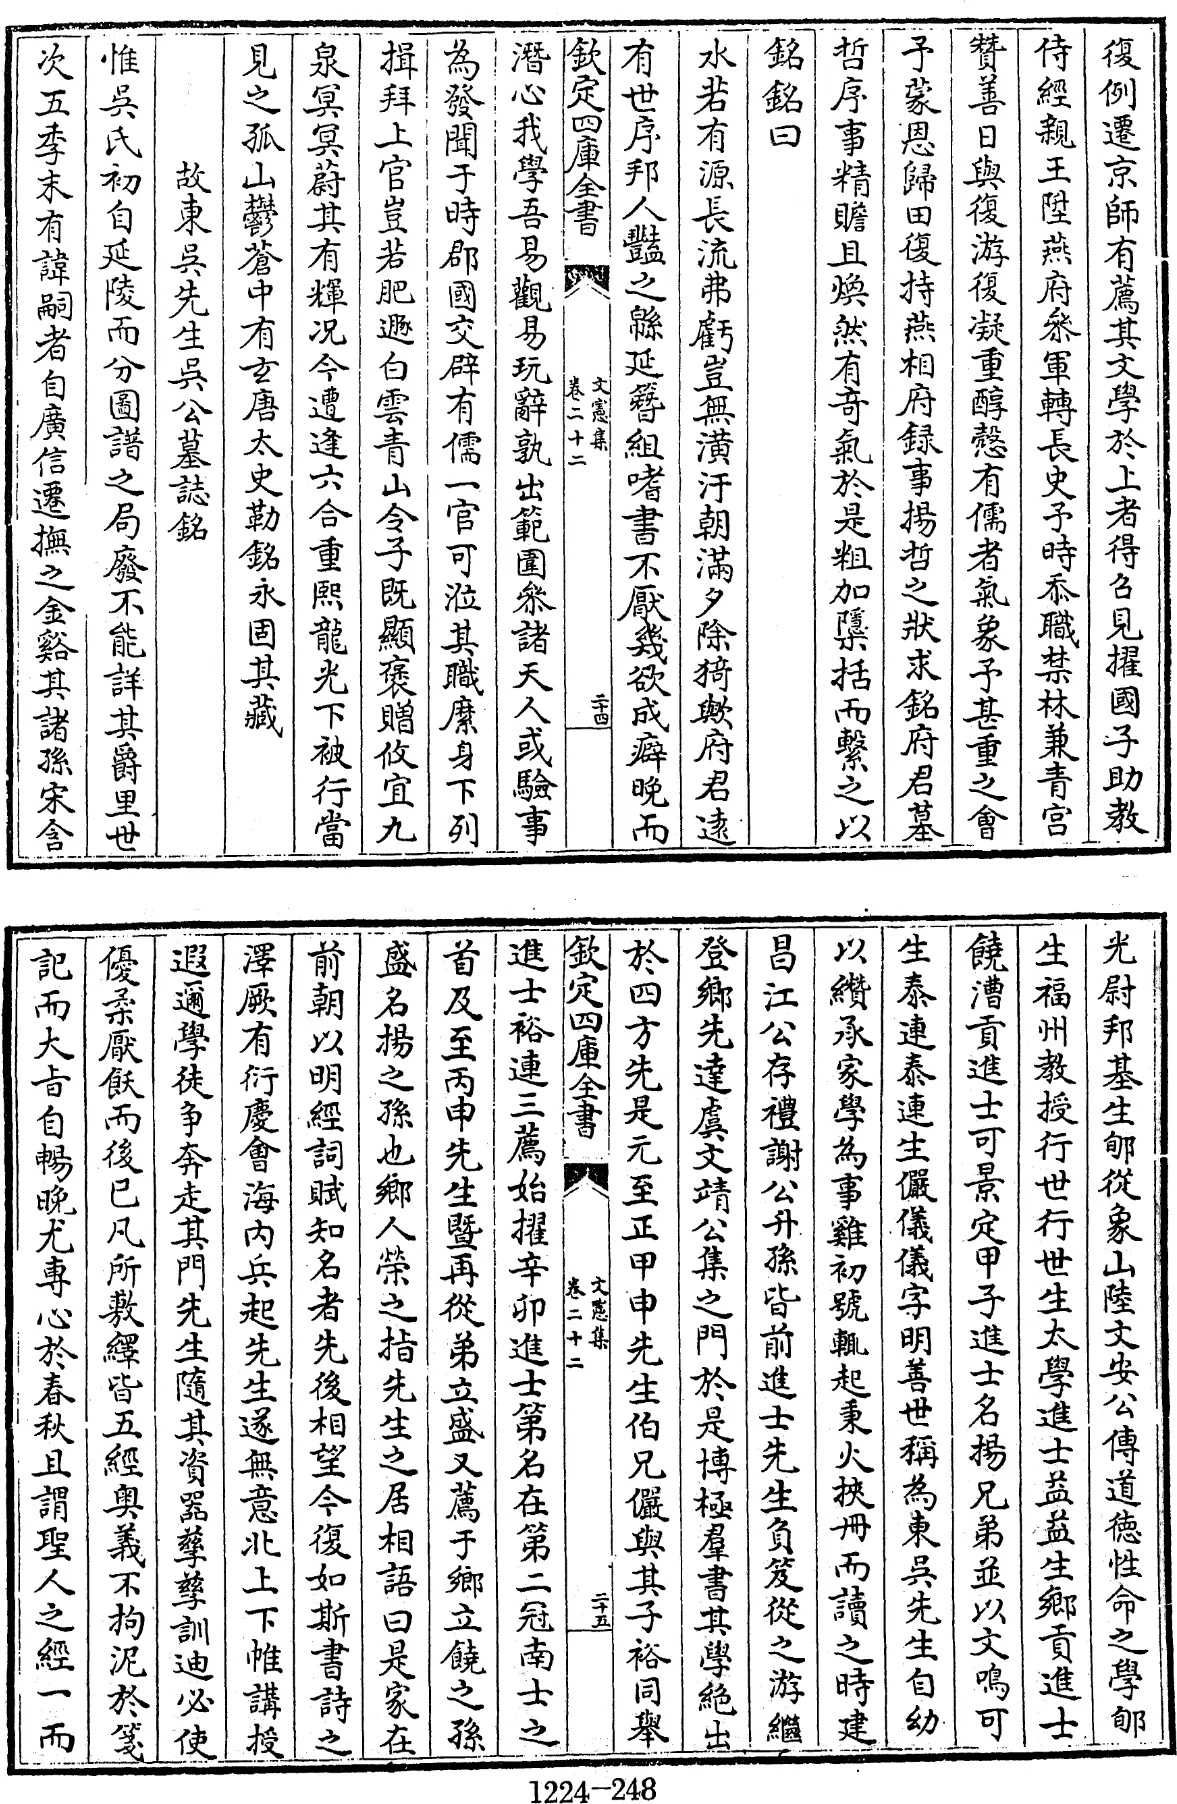 復例遷京師有薦其文學於上者得召見擢國子助教
侍經親王陞燕府叅軍轉長史予時忝職禁林兼青宮
贊善日與復游復凝重醇慤有儒者氣象予甚重之會
予蒙恩歸田復持燕相府録事揚哲之狀求銘府君墓
哲序事精贍且煥然有竒氣於是粗加櫽括而繫之以
銘銘曰
水若有源長流弗虧豈無潢汙朝滿夕除猗歟府君逺
有世序邦人豔之緜延簪組嗜書不厭幾欲成癖晚而
欽定四庫全書
文憲集
卷二十二
二十四
潛心我學吾易觀易玩辭孰出範圍叅諸天人或驗事
為發聞于時郡國交辟有儒一官可涖其職縻身下列
揖拜上官豈若肥遯白雲青山令子既顯褒贈攸宜九
泉冥冥蔚其有輝况今遭逢六合重熙龍光下被行當
見之孤山鬱蒼中有玄唐太史勒銘永固其藏
故東吳先生吳公墓誌銘
惟吳氏初自延陵而分圖譜之局廢不能詳其爵里世
次五季末有諱嗣者自廣信遷撫之金谿其諸孫宋含
光尉邦基生郇從象山陸文安公傳道徳性命之學郇
生福州教授行世行世生太學進士益益生鄉貢進士
饒漕貢進士可景定甲子進士名揚兄弟並以文鳴可
生泰連泰連生儼儀儀字明善世稱為東吳先生自幼
以纘承家學為事雞初號輒起秉火挾冊而讀之時建
昌江公存禮謝公升孫皆前進士先生負笈從之游繼
登鄉先達虞文靖公集之門於是博極羣書其學絶出
於四方先是元至正甲申先生伯兄儼與其子裕同舉
欽定四庫全書
文憲集
卷二十二
二十五
進士裕連三薦始擢辛卯進士第名在第二冠南士之
首及至丙申先生暨再從弟立盛又薦于鄉立饒之孫
盛名揚之孫也鄉人榮之指先生之居相語曰是家在
前朝以明經詞賦知名者先後相望今復如斯書詩之
澤厥有衍慶會海内兵起先生遂無意北上下帷講授
遐邇學徒争奔走其門先生隨其資器孳孳訓迪必使
優柔厭飫而後已凡所敷繹皆五經奥義不拘泥於箋
記而大㫖自暢晚尤專心於春秋且謂聖人之經一而
1224-248